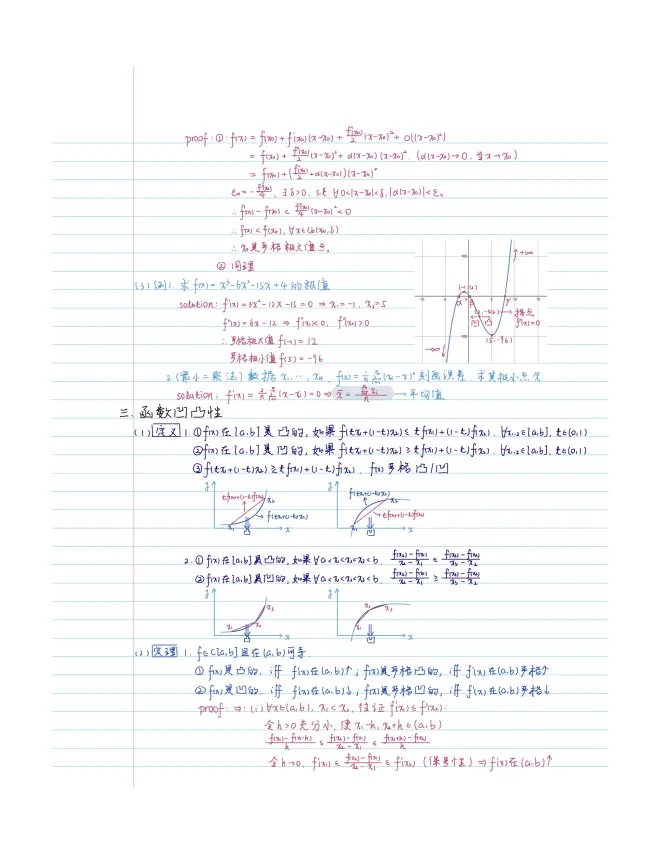 proof: ① f(x) = f(x₀) + f'(x₀)(x-x₀) + f''(x₀)/2 (x-x₀)² + o((x-x₀)²)
= f(x₀) + f''(x₀)/2 (x-x₀)² + α(x-x₀)(x-x₀)². (α(x-x₀)→0, 当x→x₀)
= f(x₀) + (f''(x₀)/2 + α(x-x₀))(x-x₀)²
ε₀ = -f''(x₀)/4, ∃δ>0, s.t. ∀0<|x-x₀|<δ, |α(x-x₀)|<ε₀
∴ f(x) - f(x₀) < f''(x₀)/4 (x-x₀)² < 0
∴ f(x) < f(x₀), ∀x∈Ů(x₀,δ)
∴ x₀是严格极大值点.
② 同理
(3) 例 1. 求 f(x) = x³-6x²-15x+4 的极值
solution: f'(x) = 3x²-12x-15 = 0 ⇒ x₁=-1, x₂=5
f''(x) = 6x-12 ⇒ f''(x₁)<0, f''(x₂)>0
∴ 严格极大值 f(-1) = 12
严格极小值 f(5) = -96
+∞
(-1,12)
α β γ
(2,-42) → 拐点
凹 凸 f''(x)=0
(5,-96)
-∞
2. (最小二乘法) 数据 x₁,…,xₙ, f(x) = 1/n Σ(xᵢ-x)² 刻画误差. 求其极小点 x̄
solution: f'(x) = 2/n Σ(x-xᵢ) = 0 ⇒ x̄ = Σxᵢ/n → 平均值
三. 函数凹凸性
(1) 定义 1. ① f(x) 在 [a,b] 是凸的, 如果 f(tx₁+(1-t)x₂) ≤ tf(x₁)+(1-t)f(x₂). ∀x₁,₂∈[a,b], t∈(0,1)
② f(x) 在 [a,b] 是凹的, 如果 f(tx₁+(1-t)x₂) ≥ tf(x₁)+(1-t)f(x₂). ∀x₁,₂∈[a,b], t∈(0,1)
③ f(tx₁+(1-t)x₂) ≷ tf(x₁)+(1-t)f(x₂). f(x) 严格凸/凹
y tf(x₁)+(1-t)f(x₂) x₂ f(tx₁+(1-t)x₂) x₁ 凸 x
y f(tx₁+(1-t)x₂) x₂ tf(x₁)+(1-t)f(x₂) x₁ 凹 x
2. ① f(x) 在 [a,b] 是凸的, 如果 ∀a<x₁<x₂<x₃<b. (f(x₂)-f(x₁))/(x₂-x₁) ≤ (f(x₃)-f(x₂))/(x₃-x₂)
② f(x) 在 [a,b] 是凹的, 如果 ∀a<x₁<x₂<x₃<b. (f(x₂)-f(x₁))/(x₂-x₁) ≥ (f(x₃)-f(x₂))/(x₃-x₂)
y x₁ x₂ x₃ 凸 x
y x₁ x₂ x₃ 凹 x
(2) 定理 1. f∈C[a,b] 且在 (a,b) 可导.
① f(x) 是凸的. iff f'(x) 在 (a,b)↑; f(x) 是严格凸的, iff f'(x) 在 (a,b) 严格↑
② f(x) 是凹的. iff f'(x) 在 (a,b)↓; f(x) 是严格凹的, iff f'(x) 在 (a,b) 严格↓
proof: ⇒: (i) ∀x∈(a,b), x₁<x₂, 往证 f'(x₁) ≤ f'(x₂):
令 h>0 充分小, 使 x₁-h, x₂+h∈(a,b)
(f(x₁)-f(x₁-h))/h ≤ (f(x₂)-f(x₁))/(x₂-x₁) ≤ (f(x₂+h)-f(x₂))/h
令 h→0, f'(x₁) ≤ (f(x₂)-f(x₁))/(x₂-x₁) ≤ f'(x₂) (保号性) ⇒ f'(x) 在 (a,b)↑